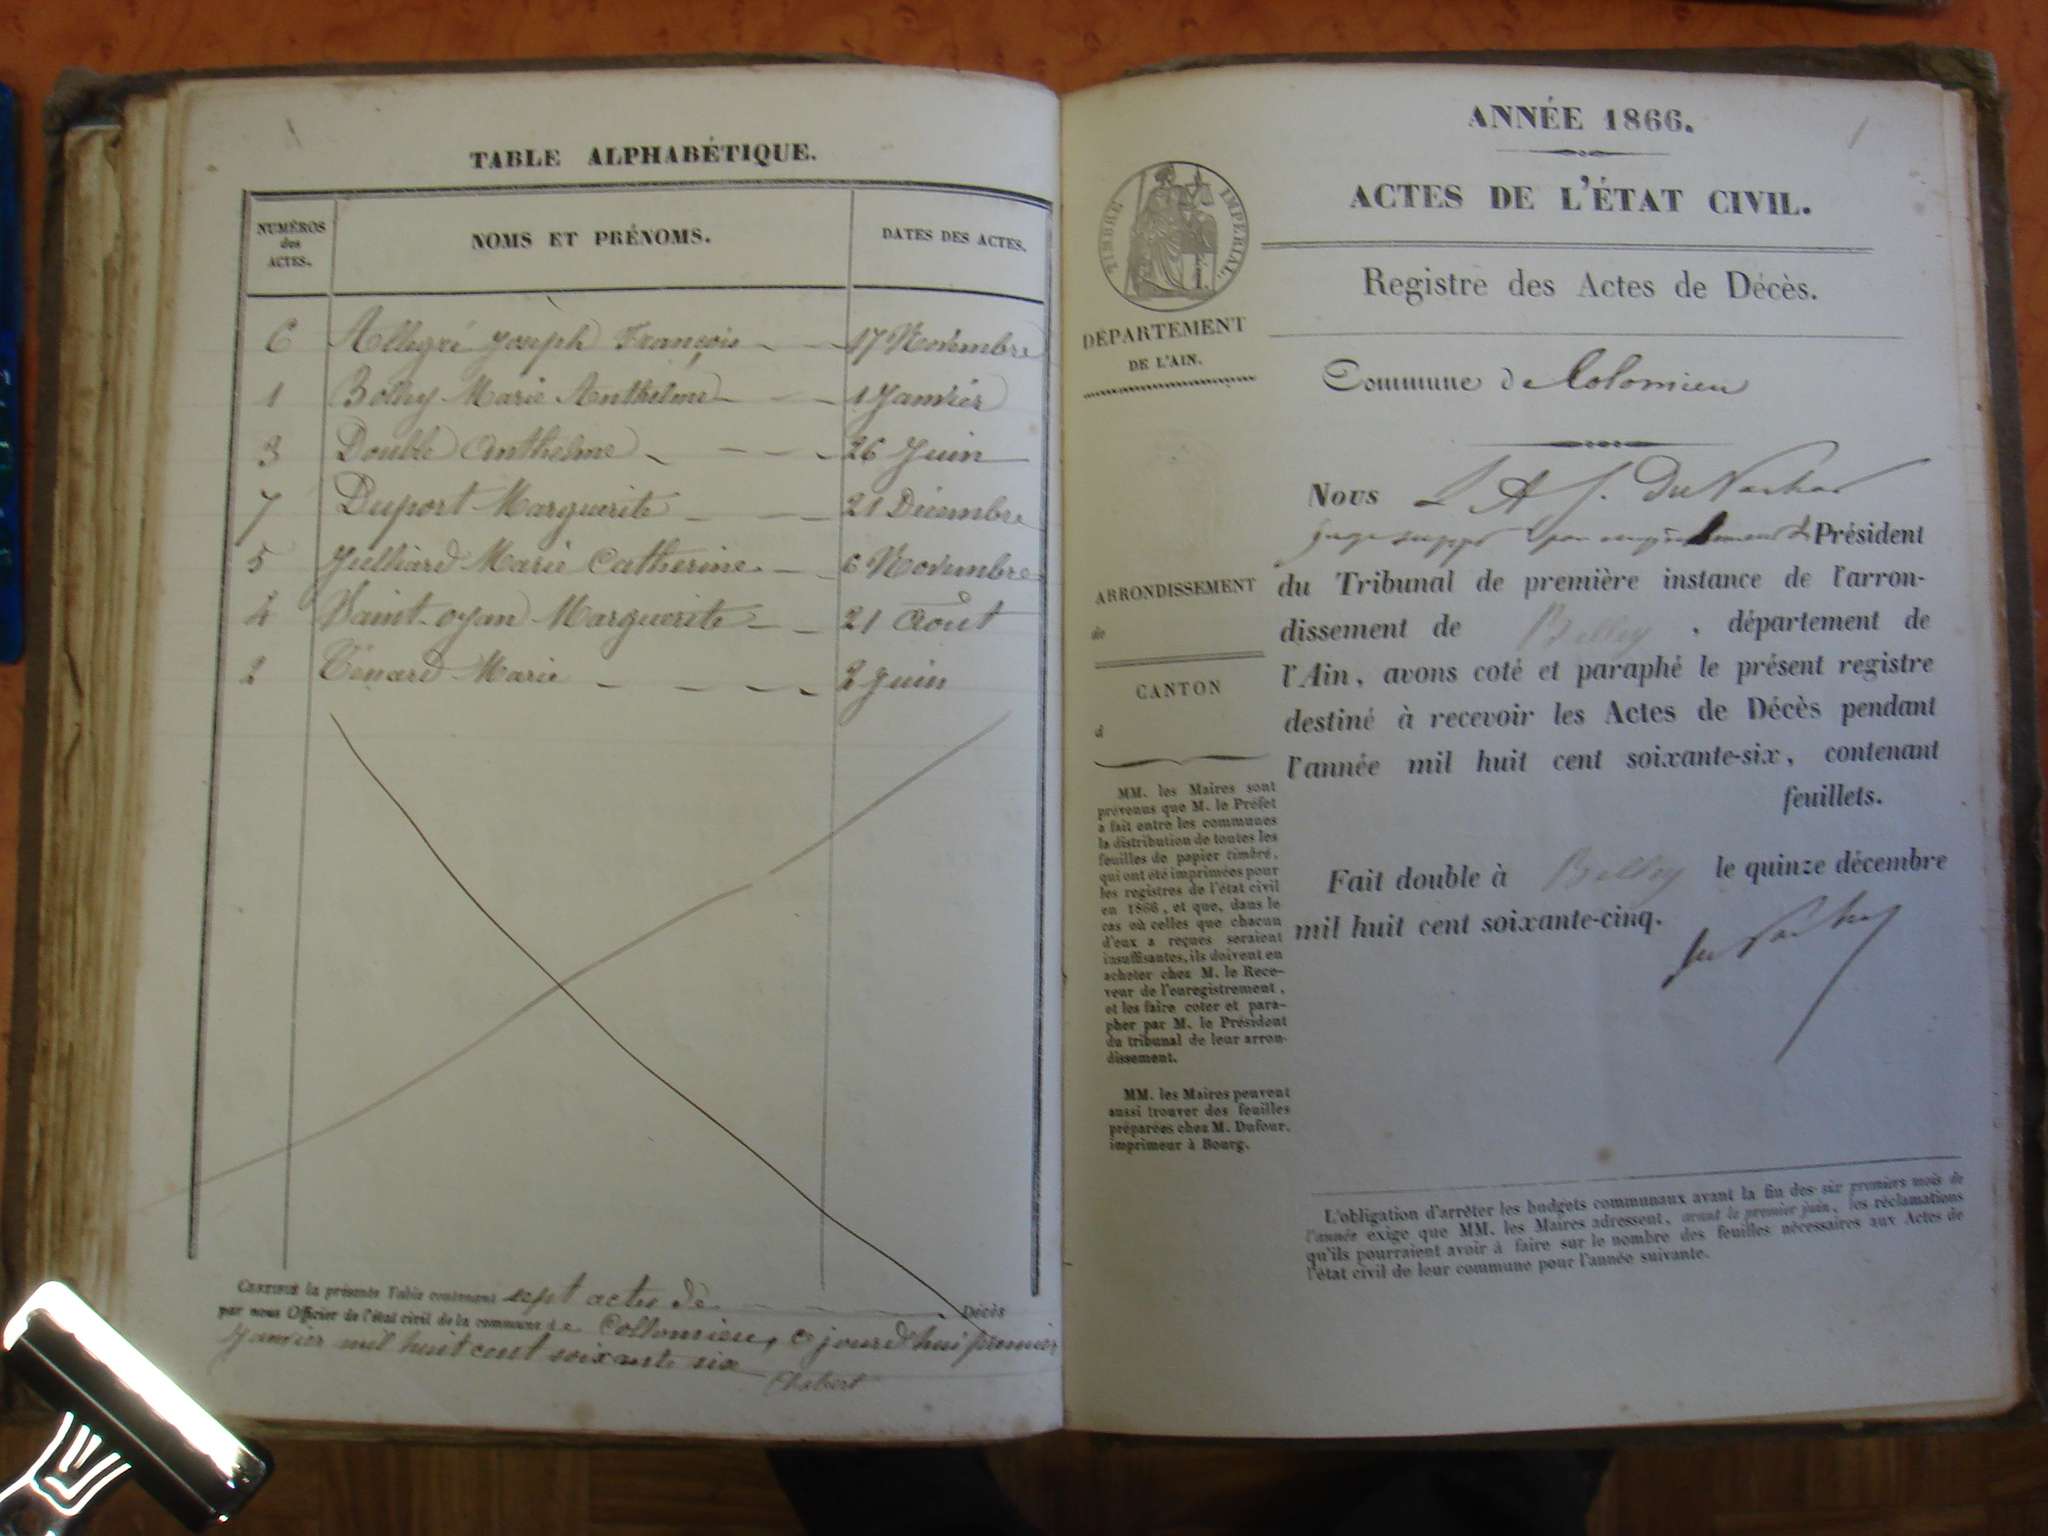 TABLE ALPHABÉTIQUE.
NUMÉROS des ACTES.
NOMS ET PRÉNOMS.
DATES DES ACTES.
6 Allegré Joseph François 17 Novembre
1 Bolley Marie Anthelme 1 Janvier
3 Double Anthelme 26 Juin
7 Duport Marguerite 21 Décembre
5 Julliard Marie Catherine 6 Novembre
4 Saint-oyan Marguerite 21 Août
2 Tenard Marie 2 Juin
CERTIFIÉ la présente Table contenant sept actes de Décès
par nous Officier de l'état civil de la commune de Collomieu, ce jourd'hui premier
Janvier mil huit cent soixante six
Chabert
ANNÉE 1866.
1
ACTES DE L'ÉTAT CIVIL.
TIMBRE IMPÉRIAL.
Registre des Actes de Décès.
DÉPARTEMENT
DE L'AIN.
Commune de Colomieu
Nous L A J.
juge Président
du Tribunal de première instance de l'arron-
dissement de Belley, département de
l'Ain, avons coté et paraphé le présent registre
destiné à recevoir les Actes de Décès pendant
l'année mil huit cent soixante-six, contenant
feuillets.
Fait double à Belley le quinze décembre
mil huit cent soixante-cinq.
ARRONDISSEMENT
de
CANTON
d
MM. les Maires sont
prévenus que M. le Préfet
a fait entre les communes
la distribution de toutes les
feuilles de papier timbré,
qui ont été imprimées pour
les registres de l'état civil
en 1866, et que, dans le
cas où celles que chacun
d'eux a reçues seraient
insuffisantes, ils doivent en
acheter chez M. le Rece-
veur de l'enregistrement,
et les faire coter et para-
pher par M. le Président
du tribunal de leur arron-
dissement.
MM. les Maires peuvent
aussi trouver des feuilles
préparées chez M. Dufour,
imprimeur à Bourg.
L'obligation d'arrêter les budgets communaux avant la fin des six premiers mois de
l'année exige que MM. les Maires adressent, avant le premier juin, les réclamations
qu'ils pourraient avoir à faire sur le nombre des feuilles nécessaires aux Actes de
l'état civil de leur commune pour l'année suivante.